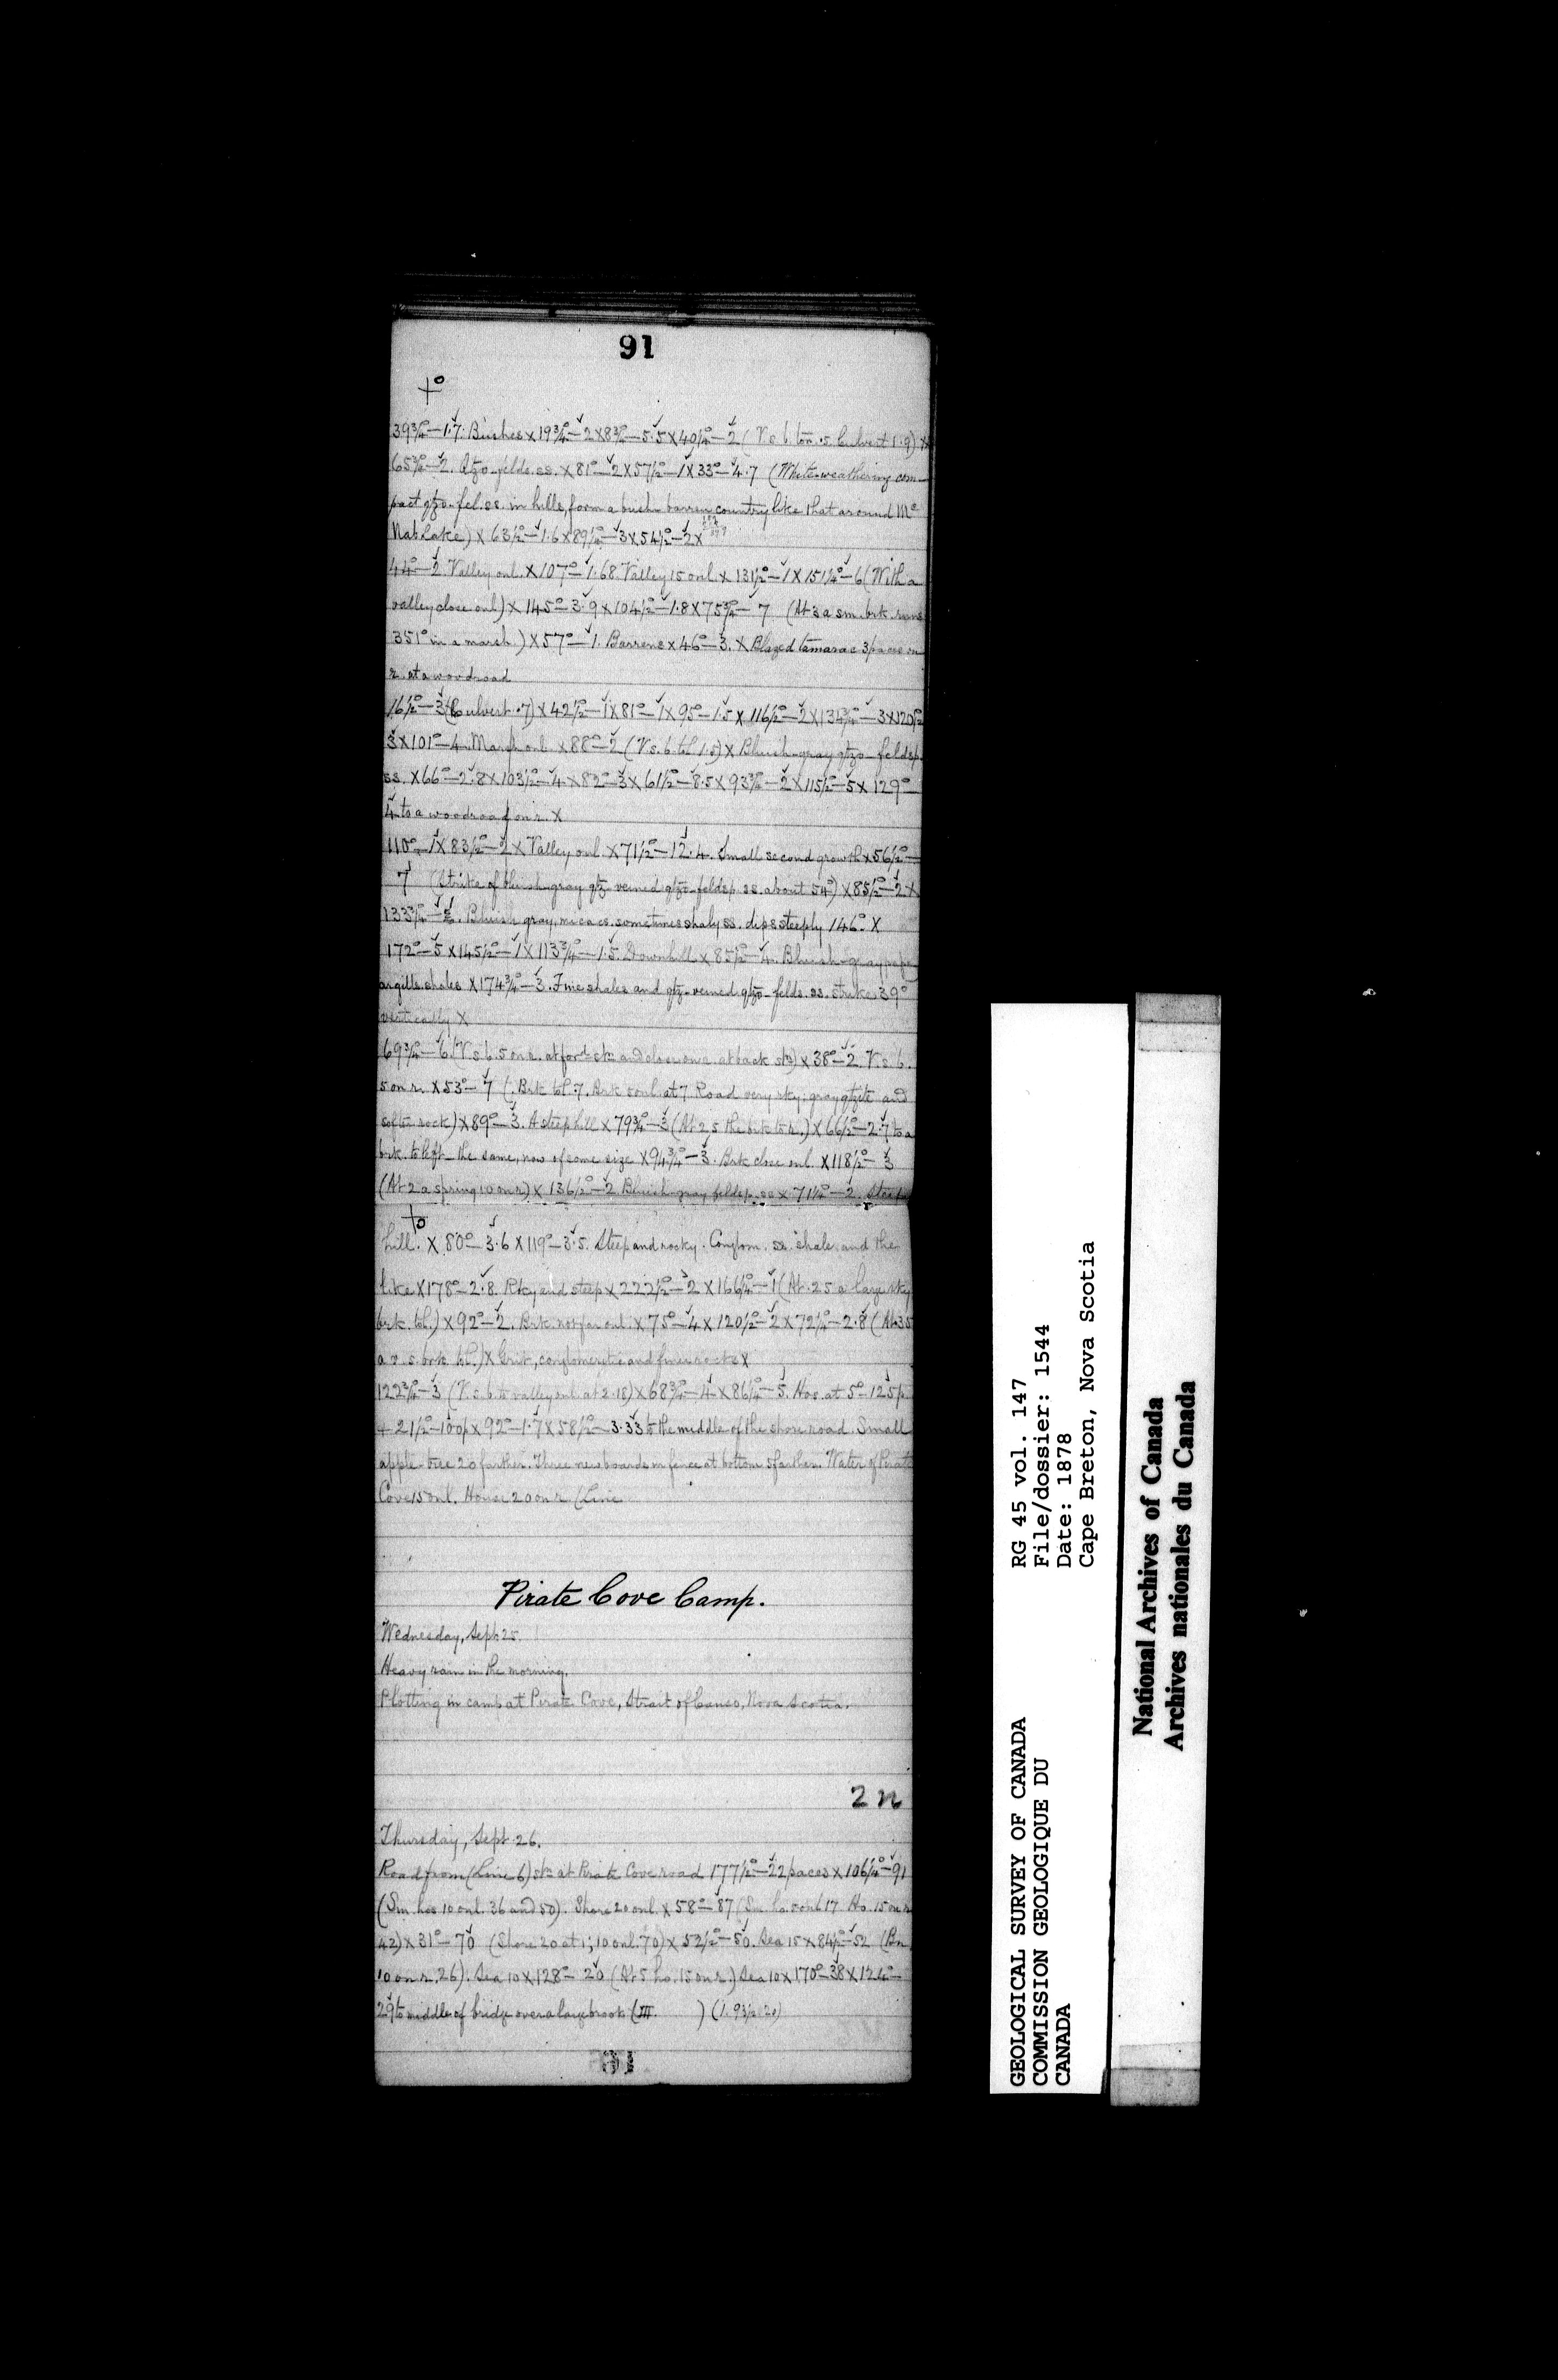 91
+°
39¾°–1.7. Bushes x 19¾°–2 x 8¾°–5.5 x 40¼°–2 (V.s.b. to r. .5. Culvert 1.9) x
65¾°–2. Qtzo-felds. ss. x 81°–2 x 57½°–1 x 33°–4.7 (White-weathering com-
pact qtzo-fel. ss. in hills, form a bush barren country like that around Mc
Nab Lake) x 63½°–1.6 x 89½°–3 x 54½°–2 x
44°–2. Valley on l. x 107°–1.68. Valley 15 on l. x 131½°–1 x 151¼°–6 (With a
valley close on l) x 145°–3.9 x 104½°–1.8 x 75¾°–7 (At 3 a sm. brk. runs
351° in a marsh.) x 57°–1. Barrens x 46°–3. x Blazed tamarac 3 paces on
r. at a woodroad
16½°–3 (Culvert .7) x 42½°–1 x 81°–1 x 95°–1.5 x 116½°–2 x 134¾°–3 x 120½°
3 x 101°–4. Marsh on l. x 88°–2 (V.s.b. to l 1.5) x Bluish-gray qtzo-feldsp.
ss. x 66°–2.8 x 103½°–4 x 82°–3 x 61½°–8.5 x 93¾°–2 x 115½°–5 x 129°–
4 to a woodroad on r. x
110°–1 x 83½°–2 x Valley on l. x 71½°–12.4. Small second growth x 56½°–
7 (Strike of bluish-gray qtz-veined qtzo-feldsp. ss. about 54°) x 85½°–2 x
133¾°– . Bluish gray, micacs. sometimes shaly ss. dips steeply 146°. x
172°–5 x 145½°–1 x 113¾°–1.5. Downhill x 85½°–4. Bluish-gray
argills. shales x 174¾°–3. Fine shales and qtz-veined qtzo-felds. ss. strike 39°
vertically x
69¾°–6. (V.s.b. 5 on r. at ford stn and close on r. at back stn) x 38°–2. V.s.b.
5 on r. x 53°–7 (. Brk to l .7. Brk 5 on l. at 7. Road very rky. gray qtzite and
softer rock) x 89°–3. A steep hill x 79¾°–3 (At 2.5 the brk to r.) x 66½°–2.7 to a
brk. to left the same, now of some size x 94¾°–3. Brk close on l. x 118½°–3
(At 2 a spring 10 on r) x 136½°–2. Bluish-gray feldsp. ss x 71¼°–2. Steep
+°
hill. x 80°–3.6 x 119°–3.5. Steep and rocky. Conglom. ss. shales and the
like x 178°–2.8. Rky and steep x 222½°–2 x 166¼°–1 (At .25 a large rky
brk. to l.) x 92°–2. Brk. not far on l. x 75°–4 x 120½°–2 x 72¼°–2.8 (At .35
a v. s. brk. to l.) x Grit, conglomeritic and finer rocks x
122¾°–3 (V.s.b. to valley on l. at 2.18) x 68¾°–4 x 86¼°–5. Hos. at 5°–125p.
+ 21½°–100p x 92°–1.7 x 58½°–3.33 to the middle of the shore road. Small
apple-tree 20 farther. Three new boards in fence at bottom 5 farther. Water of Pirate
Cove 15 on l. House 20 on r. (Line
Pirate Cove Camp.
Wednesday, Sept. 25.
Heavy rain in the morning.
Plotting in camp at Pirate Cove, Strait of Canso, Nova Scotia.
2 n
Thursday, Sept. 26.
Road from (Line 6) stn at Pirate Cove road 177½°–22 paces x 106¼°–91
(Sm. hos 10 on l. 36 and 50). Shore 20 on l. x 58°–87 (Sm. ho. 5 on l 17. Ho. 15 on r
42) x 31°–70 (Shore 20 at 1; 10 on l. 70) x 52½°–50. Sea 15 x 84½°–52 (Bn
10 on r. 26). Sea 10 x 128°–20 (At 5 ho. 15 on r.) Sea 10 x 170°–38 x 124°–
29 to middle of bridge over a large brook (III. ) (1.93½.20)
GEOLOGICAL SURVEY OF CANADA
COMMISSION GEOLOGIQUE DU
CANADA
RG 45 vol. 147
File/dossier: 1544
Date: 1878
Cape Breton, Nova Scotia
National Archives of Canada
Archives nationales du Canada